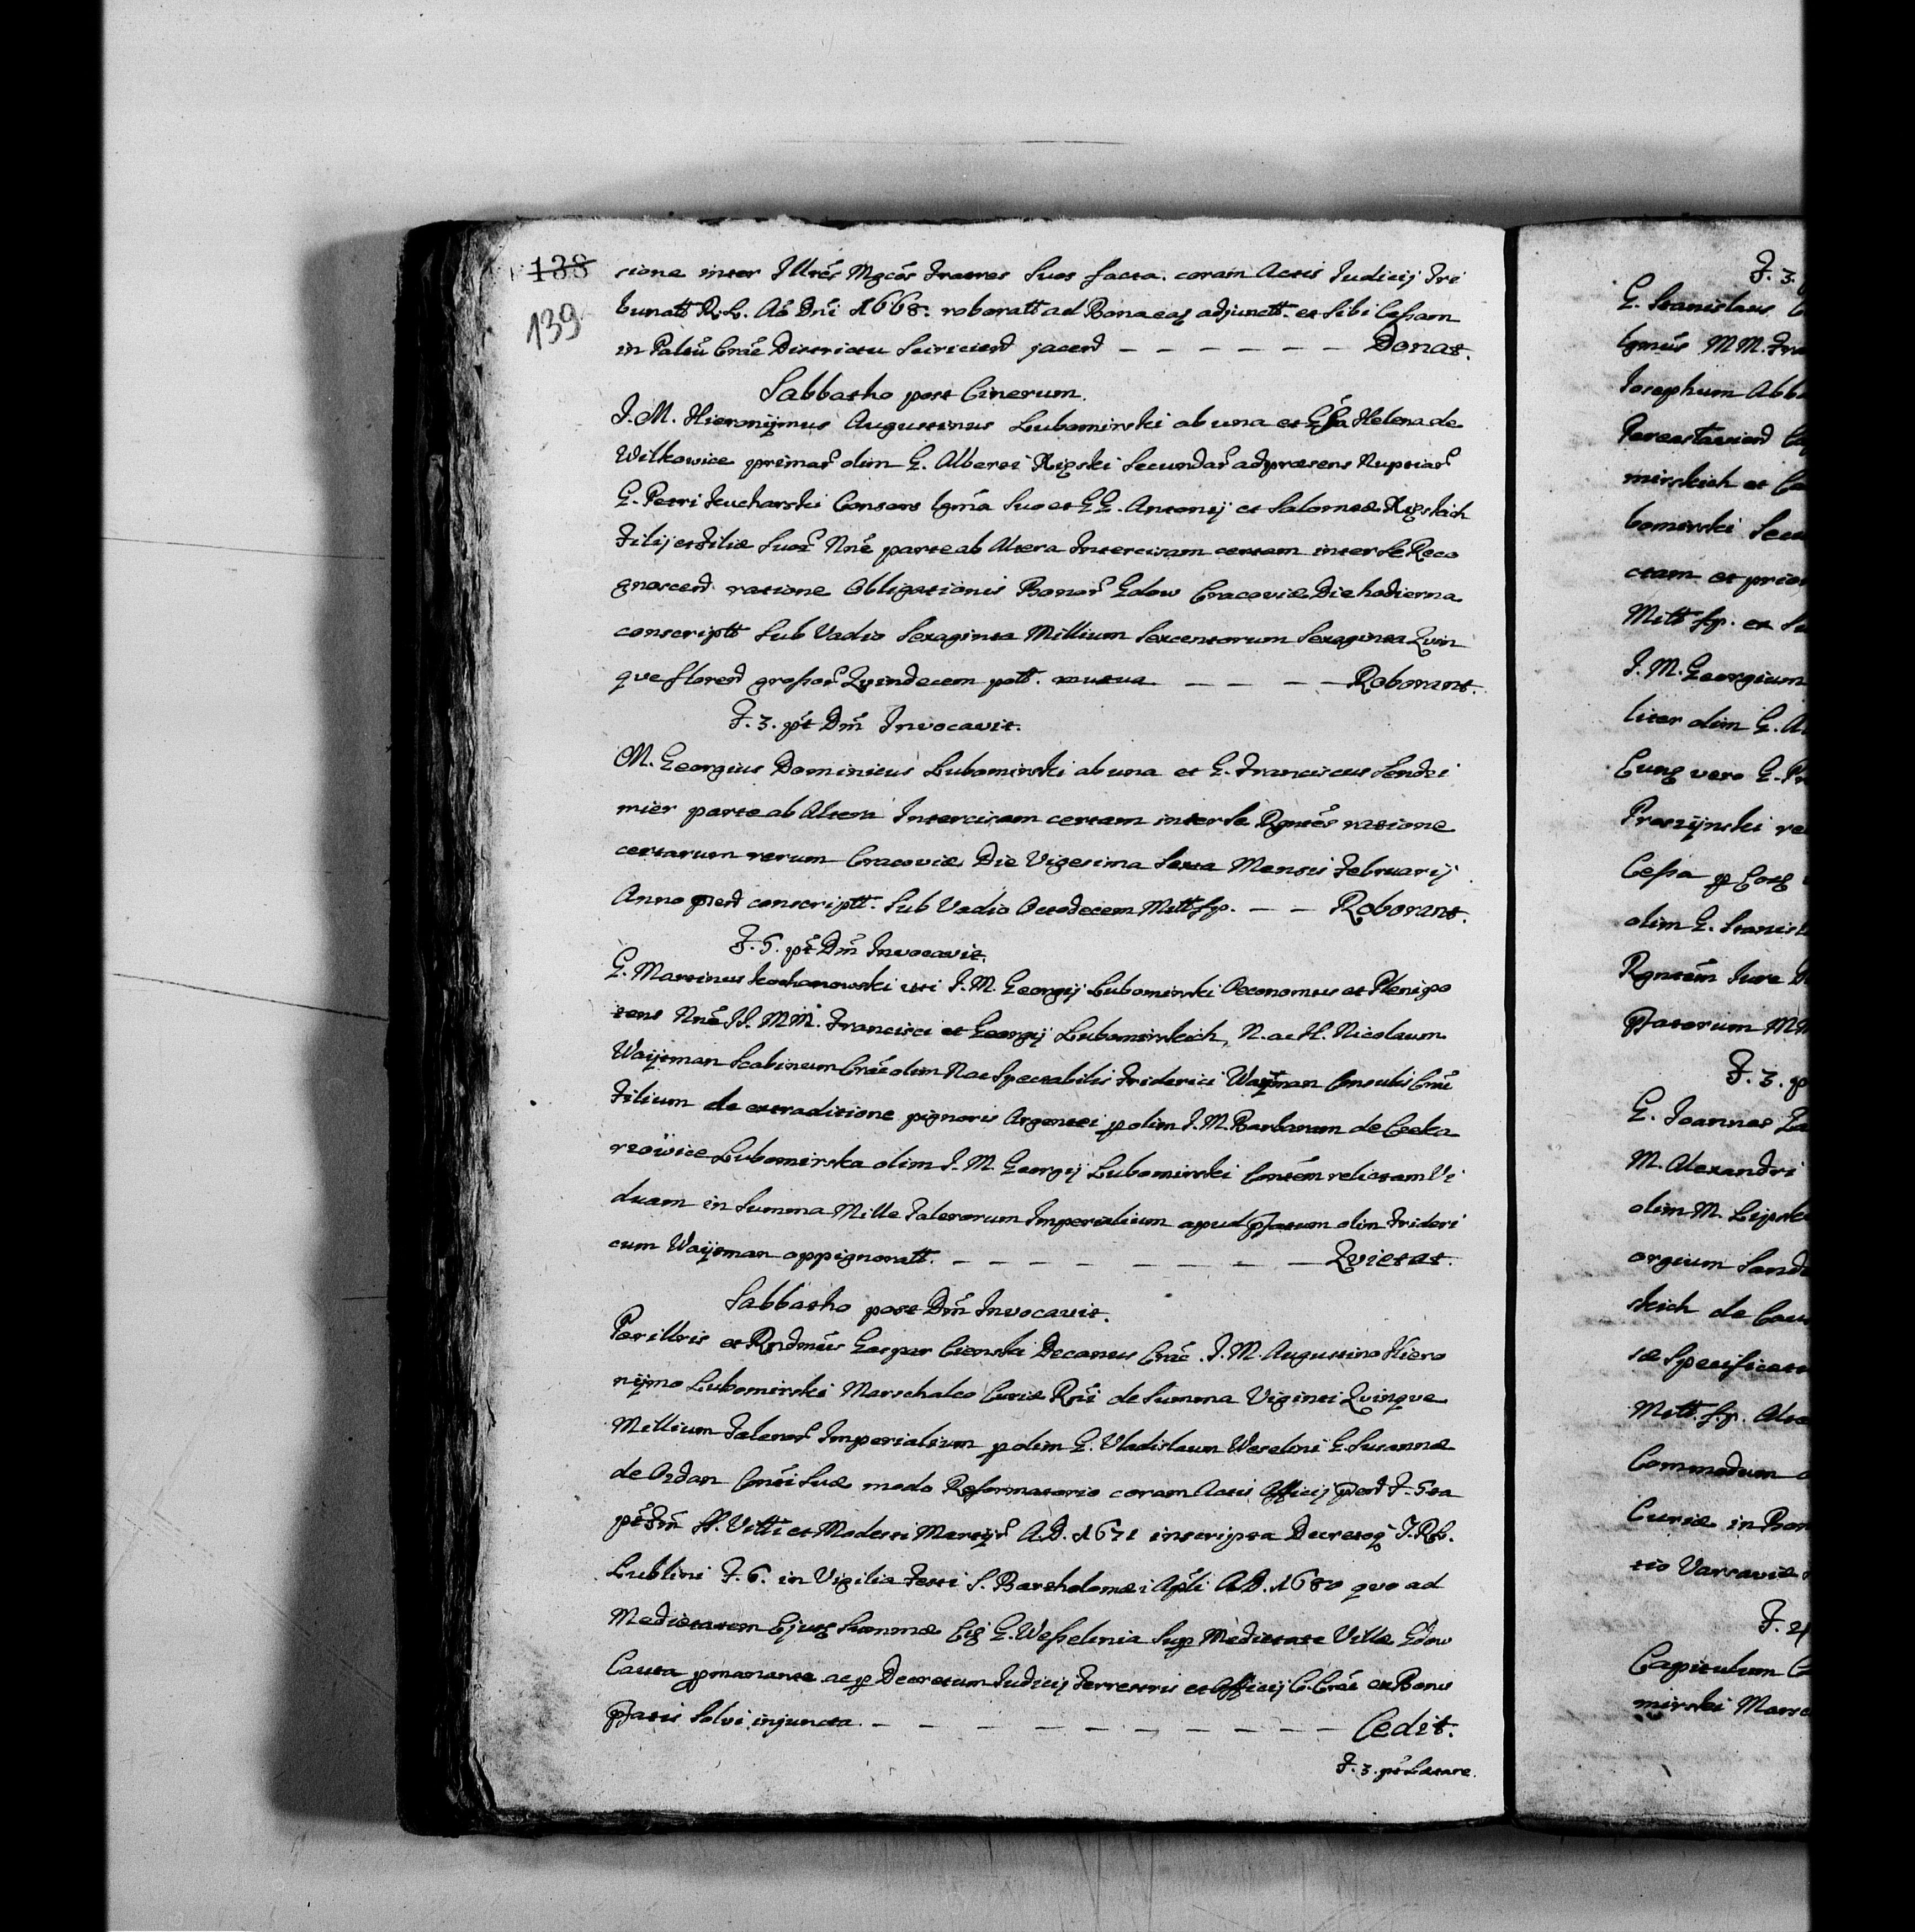 138
139
sione inter Illrēs Mgcōs Fratres Suos facta. coram Actis Iudicij Tri
bunatt R. L. Aō Dni 1668. roboratt ad Bona eaq adjunctt. et Sibi Cessam
in Paltū Craē Districtu Sciricien jacen — — — — — — Donat.
Sabbatho post Cinerum.
I. M. Hieronÿmus Augustinus Lubomirski ab una et Helena de
Witkowice primar olim G. Alberti Secundar ad præsens Nuptiar
G. Petri Kucharski Consors Suo et G G. Antonij et Salomeæ
Filij et Filiæ Suor Nnē parte ab Altera Intercisam certam inter Se Reco
gnoscen ratione Obligationis Bonor Gdow Cracoviæ Die hodierna
conscriptt Sub Vadio Sexaginta Millium Sexcentorum Sexaginta Qvin
qve floren grossor Qvindecem poll. mutua — — — — Roborant.
F. 3. pt Dm Invocavit.
M. Georgius Dominicus Lubomirski ab una et G. Franciscus Sendzi
mier parte ab Altera Intercisam certam inter Se Rgntēs ratione
certarum rerum Cracoviæ Die Vigesima Sexta Mensis Februarij
Anno conscriptt. Sub Vadio Octodecem Mill fp. — — Roborant.
F. 6. pt Dm Invocavit.
G. Martinus Kochanowski uti I. M. Georgij Lubomirski Oeconomus et Plenipo
tens Nnē II. MM. Francisci et Georgij Lubomirskich, N. ac H. Nicolaum
Waÿzman Scabinum Craē olim N ac Spectabilis Friderici Waÿzman Consulis Craē
Filium de extraditione pignoris Argentei p olim I. M. Barbaram de Czeka
rzowice Lubomirska olim I. M. Georgij Lubomirski relictam Vi
duam in Summa Mille Talerorum Imperialium apud pfatum olim Frideri
cum Waÿzman oppignoratt. — — — — — — — Qvietat.
Sabbatho post Dm Invocavit.
Perillris et Rndmūs Gaspar Cienski Decanus Craē. I. M. Augustino Hiero
nÿmo Lubomirski Marschalco Curiæ Rni de Summa Viginti Qvinqve
Millium Taleror Imperialium p olim G. Vladislaum Weselini G. Susannæ
de Ordan Suæ modo Reformatorio coram Actis Officij F. 6ta
pt Fm SS. Vitti et Modesti Martÿr A. D. 1671 inscripta Decretoq I. R. L.
Lublini F. 6. in Vigilia Festi S. Bartholomæi Apli A. D. 1680 quo ad
Medietatem Ejusq Summæ G. Wesselinia Sup Medietate Villæ Gdow
Cauta pmanente ac p Decretum Iudicij Terrestris et Officij C. Craē ex Bonis
pfatis Solvi injuncta. — — — — — — — — Cedit.
F. 3. pt Lætare.
F. 3.
G. Stanislaus
MM. Fra
Iosephum Abb
mirskich et
bomirski Secu
ctam et prior
Mill fp. ex Su
I. M. Georgium
liter olim G. A
Eunq vero G. Pr
Proszÿnski re
Cessa p Eosq
olim G. Stanisl
Rgntēm Iure
pfatorum M.M
F. 3. p
G. Ioannes Za
M. Alexandri
olim M. Lipsk
orgium Sand
skich de Cau
sæ Specificat
Mill. fp. Alte
Commodum
Curiæ in Bon
tio Varsaviæ
F. 4
Capitulum
mirski Mars